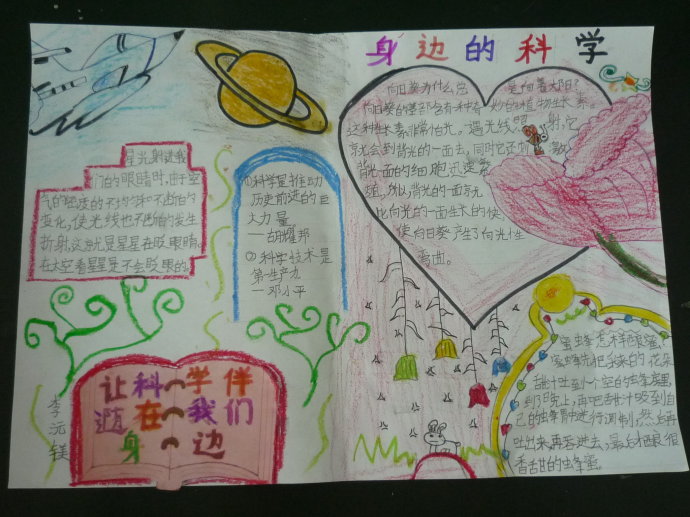 身边的科学
向日葵为什么总是向着太阳?
向日葵的茎部含有一种奇妙的植物生长素。
这种生长素非常怕光。遇光线照射,它
就会到背光的一面去,同时它还刺激
背光一面的细胞迅速繁
殖,所以,背光的一面就
比向光的一面生长的快
使向日葵产生了向光性
弯曲。
星光射进我
们的眼睛时,由于空
气的密度的不均匀和不断的
变化,使光线也不断的发生
折射,这就是星星在眨眼睛。
在太空看星星是不会眨眼的。
①科学是推动
历史前进的巨
大力量
—胡耀邦
②科学技术是
第一生产力
—邓小平
让科学伴
随在我们
身边
李沅镁
蜜蜂怎样酿蜜
蜜蜂先把采来的花朵
甜汁吐到一个空的蜂房里,
到了晚上,再吧甜汁吸到自
己的蜜胃中进行调制,然后再
吐出来,再吞进去,最后才酿很
香甜的蜂蜜。